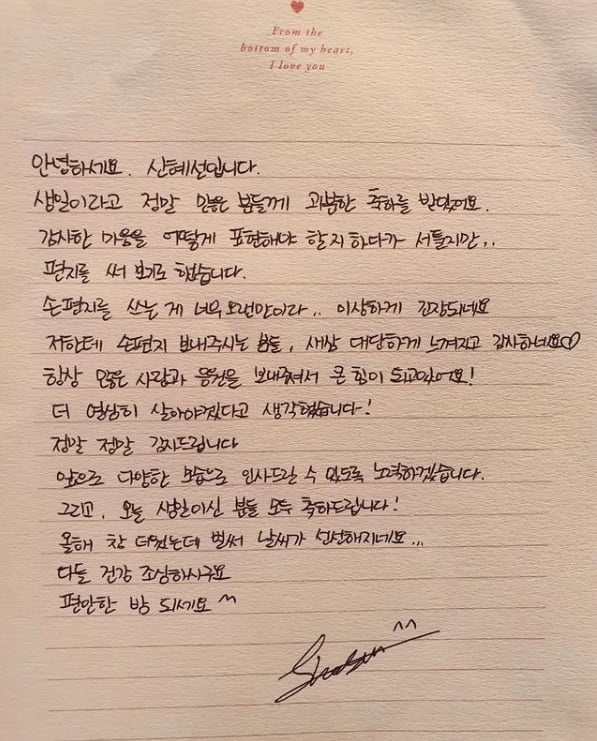 From the
bottom of my heart,
I love you
안녕하세요. 신혜선입니다.
생일이라고 정말 많은 분들께 과분한 축하를 받았어요.
감사한 마음을 어떻게 표현해야 할지 하다가 서툴지만..
편지를 써 보기로 했습니다.
손편지를 쓰는 게 너무 오랜만이라.. 이상하게 긴장되네요
저한테 손편지 보내주시는 분들, 새삼 대단하게 느껴지고 감사하네요♡
항상 많은 사랑과 응원을 보내줘서 큰 힘이 되고있어요!
더 열심히 살아야겠다고 생각했습니다!
정말 정말 감사드립니다
앞으로 다양한 모습으로 인사드릴 수 있도록 노력하겠습니다.
그리고, 오늘 생일이신 분들 모두 축하드립니다!
올해 참 더웠는데 벌써 날씨가 선선해지네요...
다들 건강 조심하시구요
편안한 밤 되세요 ^^
^^